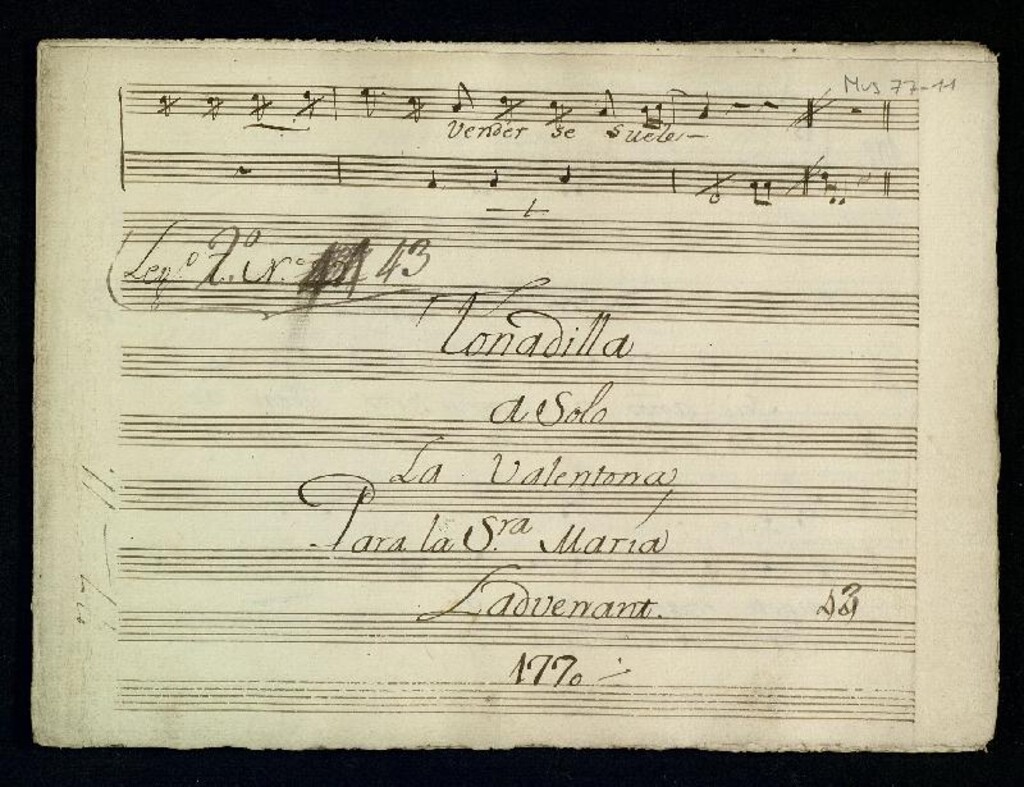 Mus 77-11
Vender se suele
Leg.º 2.º N.º 43
Tonadilla
a Solo
La Valentona
Para la S.ra Maria
Ladvenant.
1770
77-11.